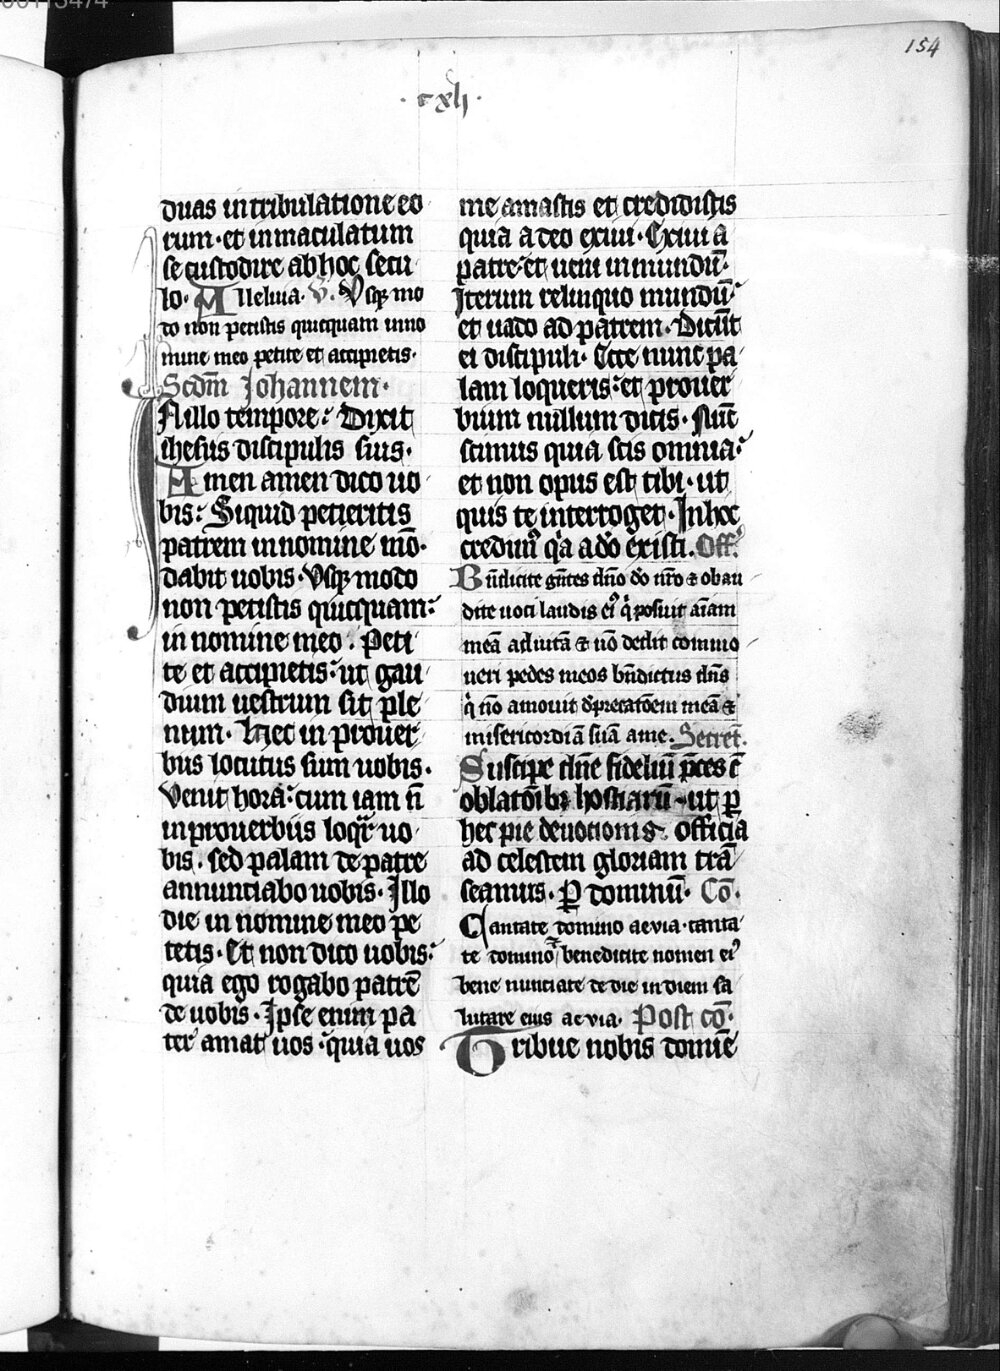 154
·cxlj·
duas in tribulatione eo
rum· et inmaculatum
se custodire ab hoc secu
lo· Alleluia· V. Usq; mo
do non petistis quicquam in no
mine meo petite et accipietis·
Scdm̄ Johannem·
In illo tempore: Dixit
ihesus discipulis suis·
Amen amen dico uo
bis: Siquid petieritis
patrem in nomine mō·
dabit uobis· Usq; modo
non petistis quicquam:
in nomine meo· Peti
te et accipietis: ut gau
dium uestrum sit ple
num· Hec in prouer
biis locutus sum uobis·
Venit hora: cum iam n̄
in prouerbiis loqr̄ uo
bis· sed palam de patre
annunciabo uobis· Illo
die in nomine meo pe
tetis· Et non dico uobis:
quia ego rogabo patrē
de uobis· Ipse enim pa
ter amat uos: quia uos
me amastis et credidistis
quia a deo exiui· Exiui a
patre: et ueni in mundū·
Iterum relinquo mundū:
et uado ad patrem· Dicūt
ei discipuli· Ecce nunc pa
lam loqueris: et prouer
bium nullum dicis· Nūc
scimus quia scis omnia:
et non opus est tibi· ut
quis te interroget· In hoc
credim⁹ q̇a a dō existi· Off.
Bn̄dicite gn̄tes dn̄o dō nr̄o ⁊ obau
dite uoci laudis ei⁹ q̇ posuit aīam
meā ad uitā ⁊ nō dedit commo
ueri pedes meos bn̄dictus dn̄s
q̇ nō amouit dp̄recatōem meā ⁊
misericordiā suā a me· Secret̄.
Suscipe dn̄e fidelium p̄ces cū
oblatōib; hostiarū· ut p̱
hec pie deuotionis officia
ad celestem gloriam trā
seamus· P̱ dominū· Cō·
Cantate domino aevia· canta
te domino, benedicite nomen ei⁹
bene nunciate de die in diem sa
lutare eius aevia· Post cō·
Tribue nobis domine